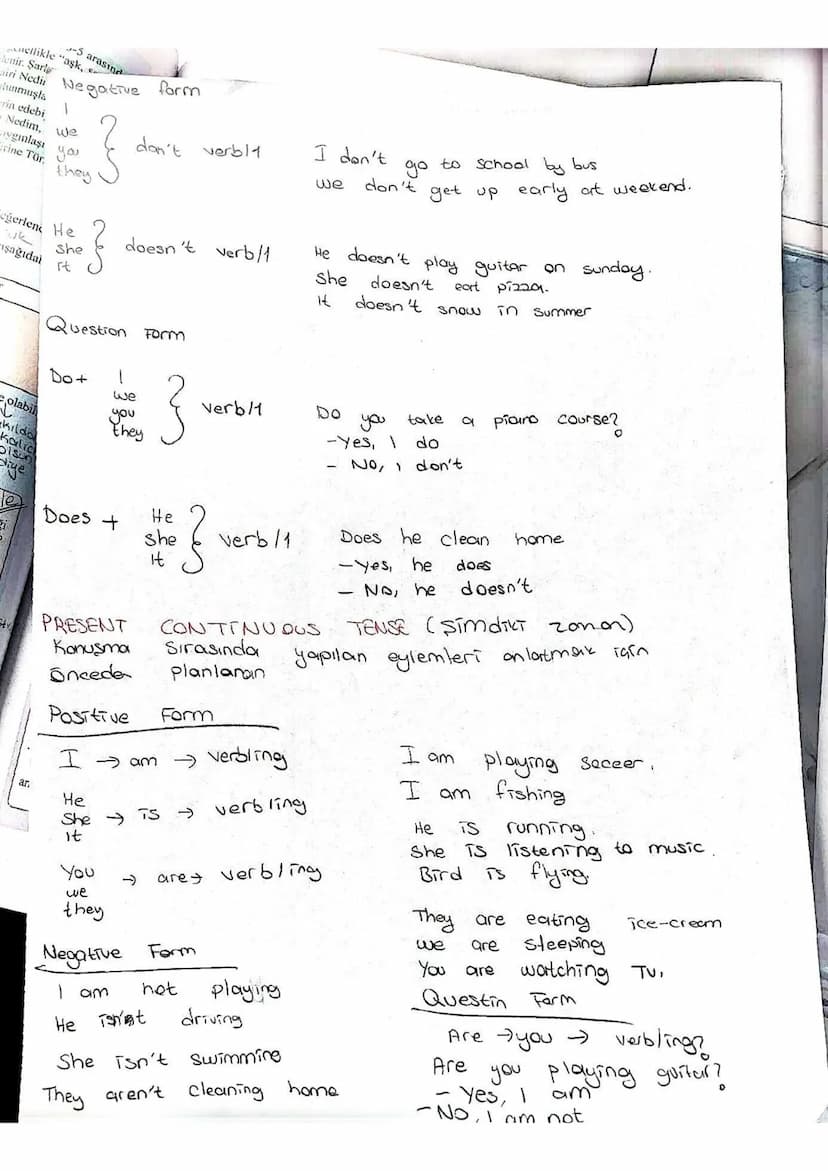 Negative form
I
we
you
they
don't verb/1
I don't go to school by bus
we don't get up early at weekend.
He
she
it
doesn't verb/1
He doesn't play guitar on sunday.
She doesn't eat pizza.
It doesn't snow in summer
Question Form
Do +
I
we
you
they
verb/1
Do you take a piano course?
-Yes, I do
- No, I don't
Does +
He
she
It
verb/1
Does he clean home
-Yes, he does
- No, he doesn't
PRESENT CONTINUOUS TENSE (Şimdiki zaman)
Konuşma sırasında yapılan eylemleri anlatmak için
Önceden planlanan
Positive Form
I → am → verb/ing
He
She
It
→ is → verb/ing
You
we
they
→ are → verb/ing
I am playing soceer.
I am fishing
He is running.
She is listening to music.
Bird is flying.
They are eating ice-cream
we are sleeping
You are watching TV.
Negative Form
I am not playing
He isn't driving
She isn't swimmine
They aren't cleaning home
Questin Form
Are → you → verb/ing?
Are you playing guitar?
- Yes, I am
- No, I am not